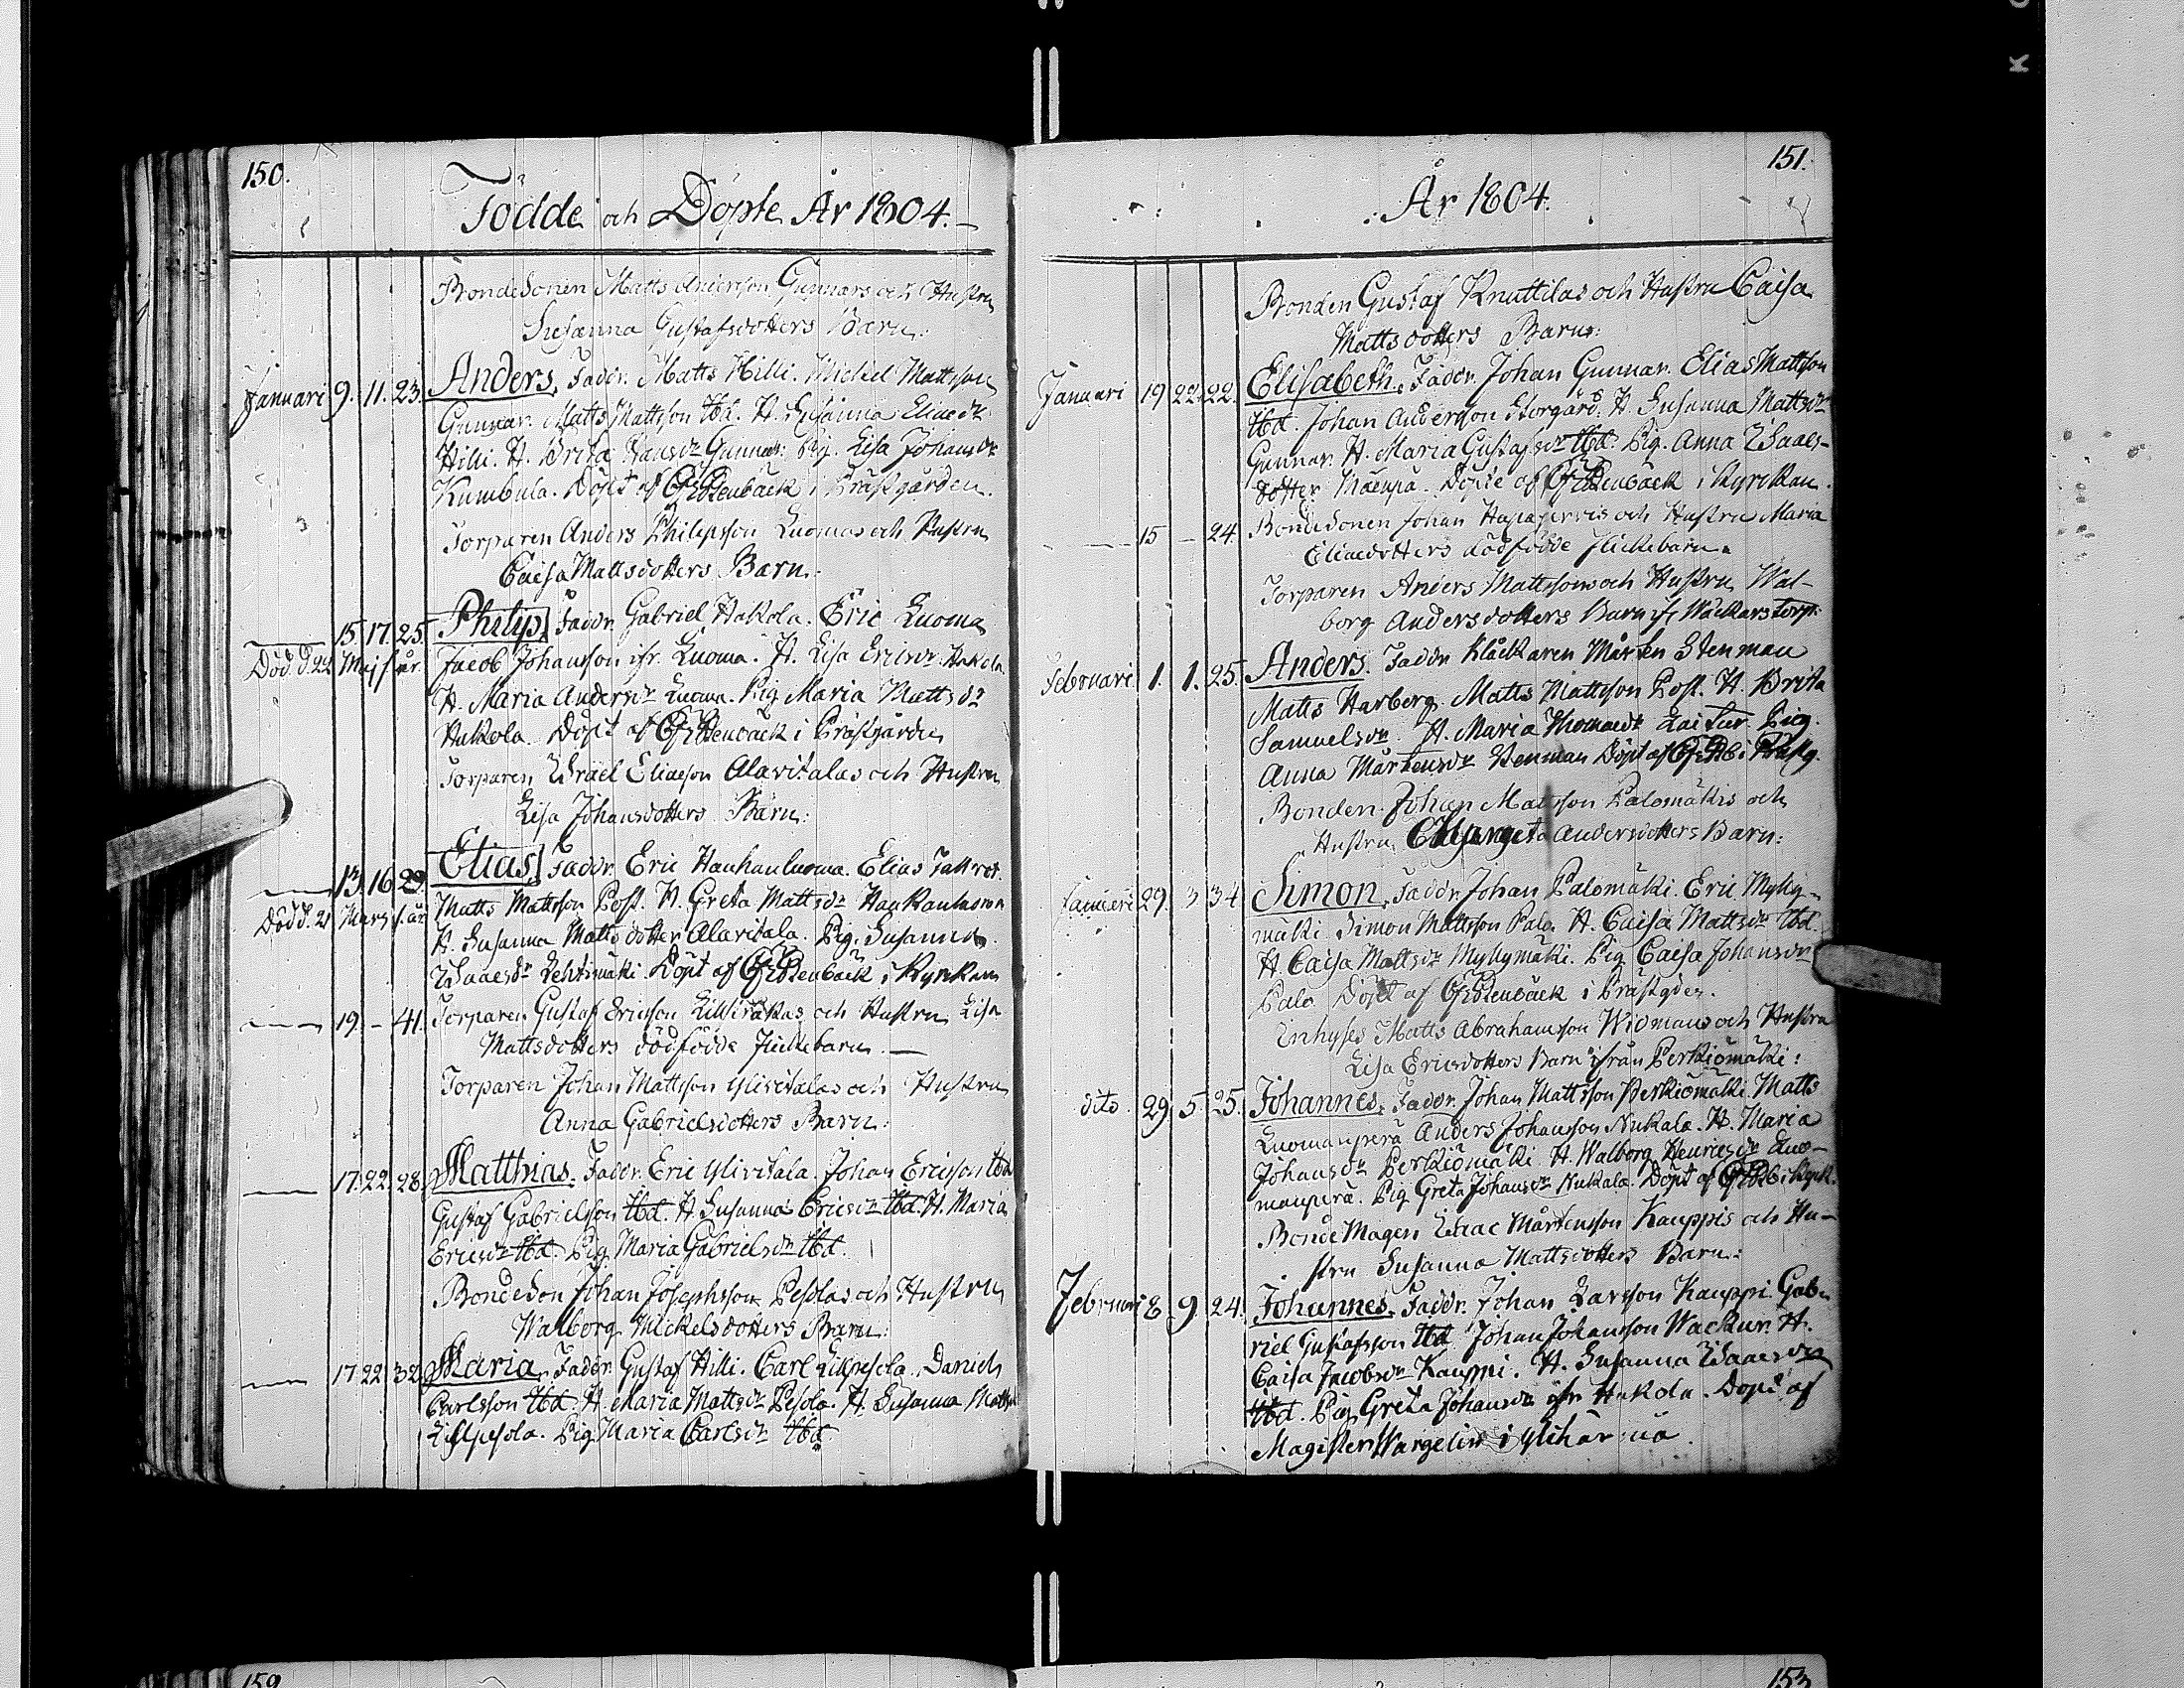 150.
Födde och Döpte År 1804.
BondeSonen Matts Andersson Gunnars och Hustru
Susanna Gustafsdotters Barn:
Januari 9. 11. 23. Anders. Faddr. Matts Hilli. Michel Mattsson
Gunnar. Matts Mattsson Ibd. H. Susanna Eliaedr
Hilli. H. Brita Hansdr Gunnar. Pig. Lisa Johansdr
Kumbula. Döpt af i Prästgården.
Torparen Anders Philipsson Luomas och Hustru
Caisa Mattsdotters Barn:
15 17. 25. Philip. Faddr. Gabriel Hakola. Eric Luoma
Död d. 22 Maj s. år. Jacob Johansson ifr. Luoma. H. Lisa Ericsdr Hakola
H. Maria Andersdr Luoma. Pig Maria Mattsdr
Hakola. Döpt af i Prästgården
Torparen Israel Eliaeson Alavitalas och Hustru
Lisa Johansdotters Barn:
13. 16. 29. Elias. Faddr. Eric Hauhanluoma. Elias
Död d. 21 Mars s. år. Matts Mattsson Post. H. Greta Mattsdr
H. Susanna Mattsdotter Alavitala. Pig. Susanna
Isaacsdr Lehtimäki. Döpt af i Kyrkan
19. – 41. Torparen Gustaf Ericsson och Hustru Lisa
Mattsdotters dödfödde flickebarn. —
Torparen Johan Mattsson Ylivitalas och Hustru
Anna Gabrielsdotters Barn:
17. 22. 28. Matthias. Faddr. Eric Ylivitala. Johan Ericsson Ibd
Gustaf Gabrielsson Ibd. H. Susanna Ericsdr Ibd. H. Maria
Ericsdr Ibd. Pig Maria Gabrielsdr Ibd.
BondeSon Johan Josephsson Pesolas och Hustru
Walborg Mickelsdotters Barn:
17 22 32 Maria. Faddr. Gustaf Hilli. Carl Lillpesola. Daniel
Carlsson Ibd. H. Maria Mattsdr Pesola. H. Susanna Mattsdr
Lillpesola. Pig Maria Carlsdr Ibd.
151.
År 1804.
Bonden Gustaf Knuttilas och Hustru Caisa
Mattsdotters Barn:
Januari 19 22. 22. Elisabeth. Faddr. Johan Gunnar. Elias Mattsson
Ibd. Johan Andersson Storgård. H. Susanna Mattsdr
Gunnar. H. Maria Gustafsdr Ibd. Pig. Anna Isaacs-
dotter Mäenpä. Döpte af i Kyrckan.
15 – 24. BondeSonen Johan Haapajervis och Hustru Maria
Eliaedotters dödfödde flickebarn.
Torparen Anders Mattssons och Hustru Wal-
borg Andersdotters Barn ifr Wackars torp:
Februari 1. 1. 25. Anders. Faddr. Klåckaren Mårten Stenman
Matts Harberg. Matts Mattsson Post. H. Brita
Samuelsdr. H. Maria Thomaedr Pig.
Anna Mårtensdr Stenman Döpt af i Prästg.
Bonden Johan Matsson Palomäkis och
Hustru Margeta Andersdotters Barn:
Januari 29. 3 34 Simon. Faddr. Johan Palomäki. Eric Mylly-
mäki. Simon Mattsson Palo. H. Caisa Mattsdr Ibd.
H. Caisa Mattsdr Myllymäki. Pig Caisa Johansdr
Palo. Döpt af i Prästgden.
Inhyses Matts Abrahamsson Widmans och Hustru
Lisa Ericsdotters Barn ifrån Perkiömäki:
dito 29 5. 25. Johannes. Faddr. Johan Mattsson Perkiömäki. Matts
Luomanperä Anders Johansson Nukala. H. Maria
Johansdr Perkiömäki. H. Walborg Henricsdr Luo-
manperä. Pig Greta Johansdr Nukala. Döpt af i Kyrk.
BondeMågen Isaac Mårtensson Kauppis och Hu-
stru Susanna Mattsdotters Barn:
Februari 8. 9. 24. Johannes. Faddr. Johan Larsson Kauppi. Gab-
riel Gustafsson Ibd. Johan Johansson Wackur. H.
Caisa Jacobsdr Kauppi. H. Susanna Isaacsdr
Ibd. Pig Greta Johansdr ifr. Hakola. Döpt af
Magister Wargelin i Ylihärmä.
159
153